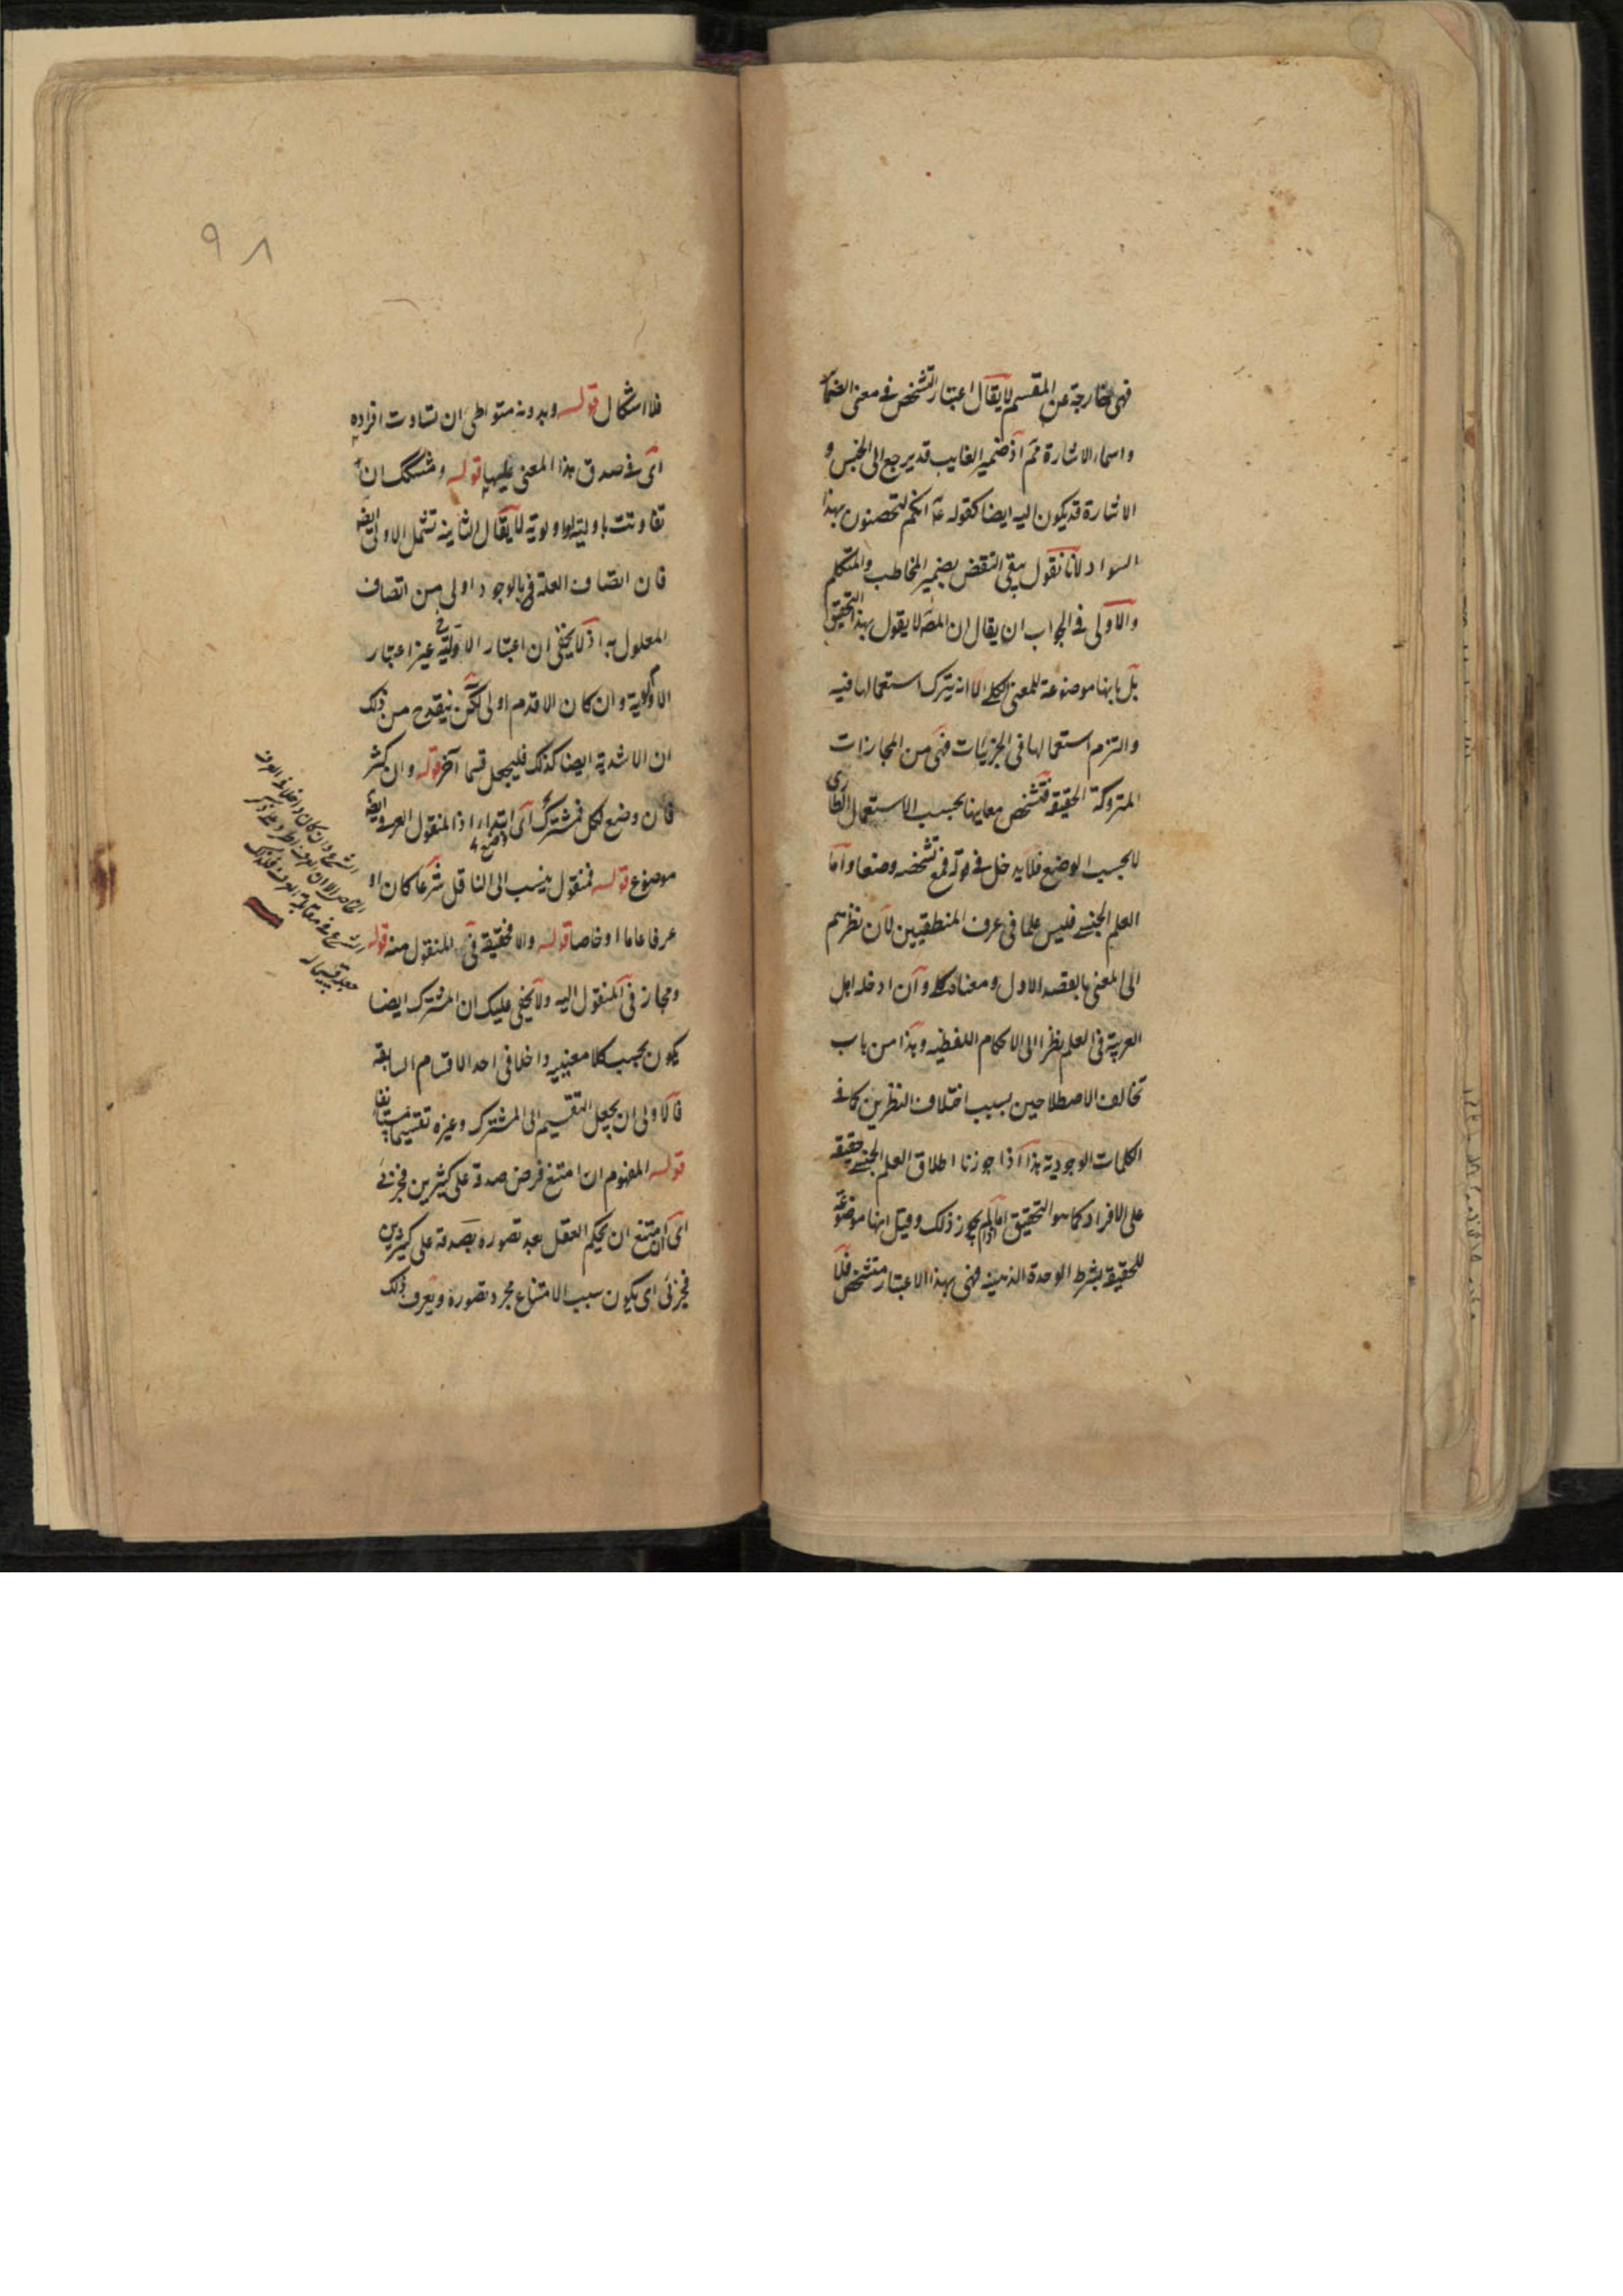 فهى خارجة عن المقسم لا يقال اعتبار التشخص فى معنى الضمائر
و اسماء الاشارة مم اذ ضمير الغايب قد يرجع الى الجنس و
الاشارة قد يكون اليه ايضا كقوله انكم لتحصنون بهذا
السواد لانا نقول بقى النقض بضمير المخاطب والمتكلم
والاولى فى الجواب ان يقال ان المصه لا يقول بهذا التحقيق
بل بانها موضوعة للمعنى الكلى الا انه يترك استعمالها فيه
والتزم استعمالها فى الجزئيات فهى من المجازات
المتروكة الحقيقة فتشخص معاينها بحسب الاستعمال الطارى
لا بحسب الوضع فلا يدخل فى قوله فمع تشخصه وضعا واما
العلم الجنسى فليس علما فى عرف المنطقيين لان نظرهم
الى المعنى بالقصد الاول ومعناه كلى وان ادخله اهل
العربية فى العلم نظرا الى الاحكام اللفظيه وهذا من باب
تخالف الاصطلاحين بسبب اختلاف النظرين كما فى
الكلمات الوجودية هذا اذا جوزنا اطلاق العلم الجنسى حقيقة
على الافراد كما هو التحقيق اما اذا لم يجوز ذلك وقيل انها موضوعة
للحقيقة بشرط الوحدة الذهنيه فهى بهذا الاعتبار متشخص فلا
٩٨
فلا اشكال قوله وبدونه متواطى ان تساوت افراده
اى فى صدق هذا المعنى عليها قوله ومشكك ان
تفاوتت باوليه او اولوية لا يقال الثانيه تشمل الاولى ايضا
فان اتصاف العلة بالوجود اولى من اتصاف
المعلول به اذ لا يخفى ان اعتبار الاولية غير اعتبار
الاولوية وان كان الاقدم اولى لكن ينقدح من ذلك
ان الاشدية ايضا كذلك فليجعل قسما آخر قوله وان كثر
فان وضع لكل فمشترك اى ابتداء اذ المنقول العرفى ايضا
موضوع قوله فمنقول ينسب الى الناقل شرعا كان او
عرفا عاما او خاصا قوله والا فحقيقة فى المنقول منه قوله
ومجاز فى المنقول اليه ولا يخفى عليك ان المشترك ايضا
يكون بحسب كلا معنييه داخلا فى احد الاقسام السابقة
فالاولى ان يجعل التقسيم الى المشترك وغيره تقسيما مستانفا
قوله المفهوم ان امتنع فرض صدقه على كثيرين فجزئى
اى ان امتنع ان يحكم العقل بعد تصوره بصدقه على كثيرين
فجزئى اى يكون سبب الامتناع مجرد تصوره ويعرف ذلك
الشرع وان كان داخلا فى العرف